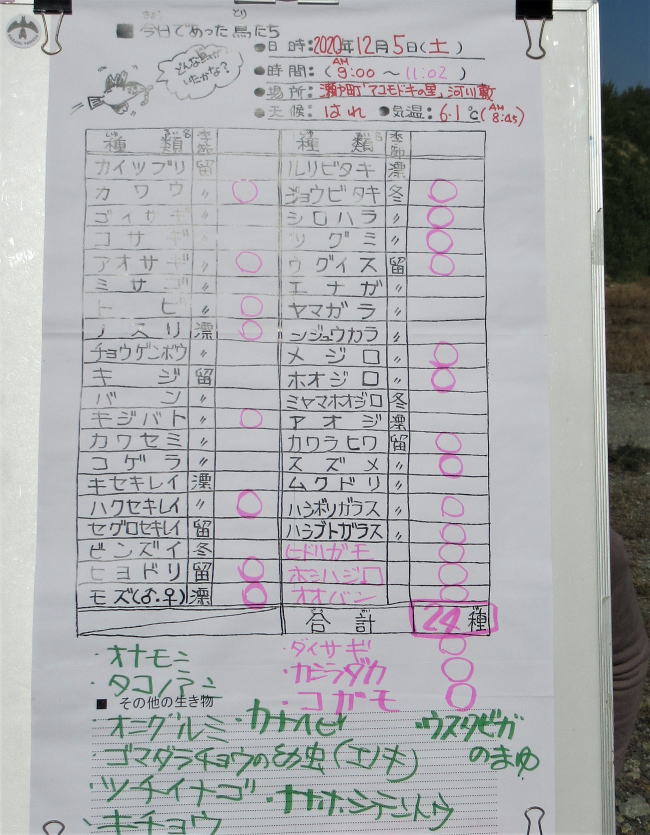 ■ 今日であった鳥たち
きょう とり
どんな鳥が
いたかな？
●日 時：2020年12月5日(土)
●時間：(AM 9:00 ～ 11:02 )
●場所：瀬戸町「アコモドキの里」河川敷
●天候：はれ ●気温：6.1℃(AM 8:45)
種類 季節 種類 季節
カイツブリ 留 ルリビタキ 漂
カワウ 〃 ○ ジョウビタキ 冬 ○
ゴイサギ 〃 シロハラ 〃 ○
コサギ 〃 ツグミ 〃 ○
アオサギ 〃 ○ ウグイス 留 ○
ミサゴ 〃 エナガ 〃
トビ 〃 ○ ヤマガラ 〃
ノスリ 漂 ○ シジュウカラ 〃
チョウゲンボウ 〃 メジロ 〃 ○
キジ 留 ホオジロ 〃 ○
バン 〃 ミヤマホオジロ 冬
キジバト 〃 ○ アオジ 漂
カワセミ 〃 カワラヒワ 留 ○
コゲラ 〃 スズメ 〃 ○
キセキレイ 漂 ムクドリ 〃
ハクセキレイ 〃 ○ ハシボソガラス 〃 ○
セグロセキレイ 留 ハシブトガラス 〃 ○
ビンズイ 冬 ヒドリガモ ○
ヒヨドリ 留 ○ ホシハジロ ○
モズ(♂・♀) 漂 ○ オオバン ○
合計 24種
・オナモミ ・ダイサギ ○
・タコノアシ ・カシラダカ ○
・コガモ ○
■ その他の生き物
・オニグルミ ・カナヘビ ・ウスタビガ
のまゆ
・ゴマダラチョウの幼虫(エノキ)
・ツチイナゴ ・ナナホシテントウ
・キチョウ